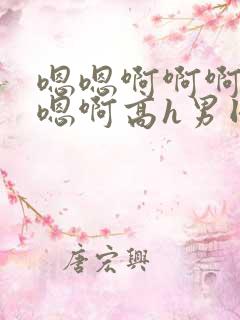 嗯嗯啊啊啊
嗯啊高h男
唐宏興